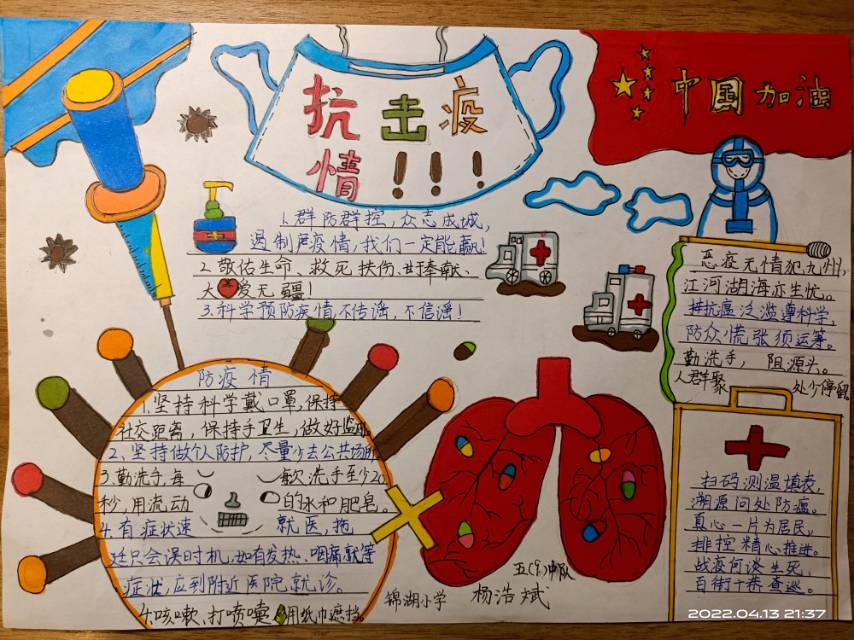 抗击疫
情!!!
中国加油
1.群防群控,众志成城,
遏制声疫情,我们一定能赢!
2.敬佑生命、救死扶伤、甘于奉献、
大爱无疆!
3.科学预防疾情,不传谣,不信谣!
恶疫无情犯九州,
江河湖海亦生忧。
抵抗瘟泛滥尊科学,
防众慌张须运筹。
勤洗手,阻源头。
人群聚 处少停留
防疫情
1.坚持科学戴口罩,保持
社交距离,保持手卫生,做好监测
2、坚持做个人防护,尽量少去公共场所
3.勤洗手,每 次洗手至少20
秒,用流动 的水和肥皂。
4.有症状速 就医,拖
延只会误时机,如有发热、咽痛就等
症状,应到附近医院就诊。
4.咳嗽、打喷嚏 用纸巾遮挡。
扫码测温填表,
溯源问处防瘟。
真心一片为居民,
排控精心推进。
战疫何谈生死,
百街十巷查巡。
五(9)中队
锦湖小学 杨浩斌
2022.04.13 21:37